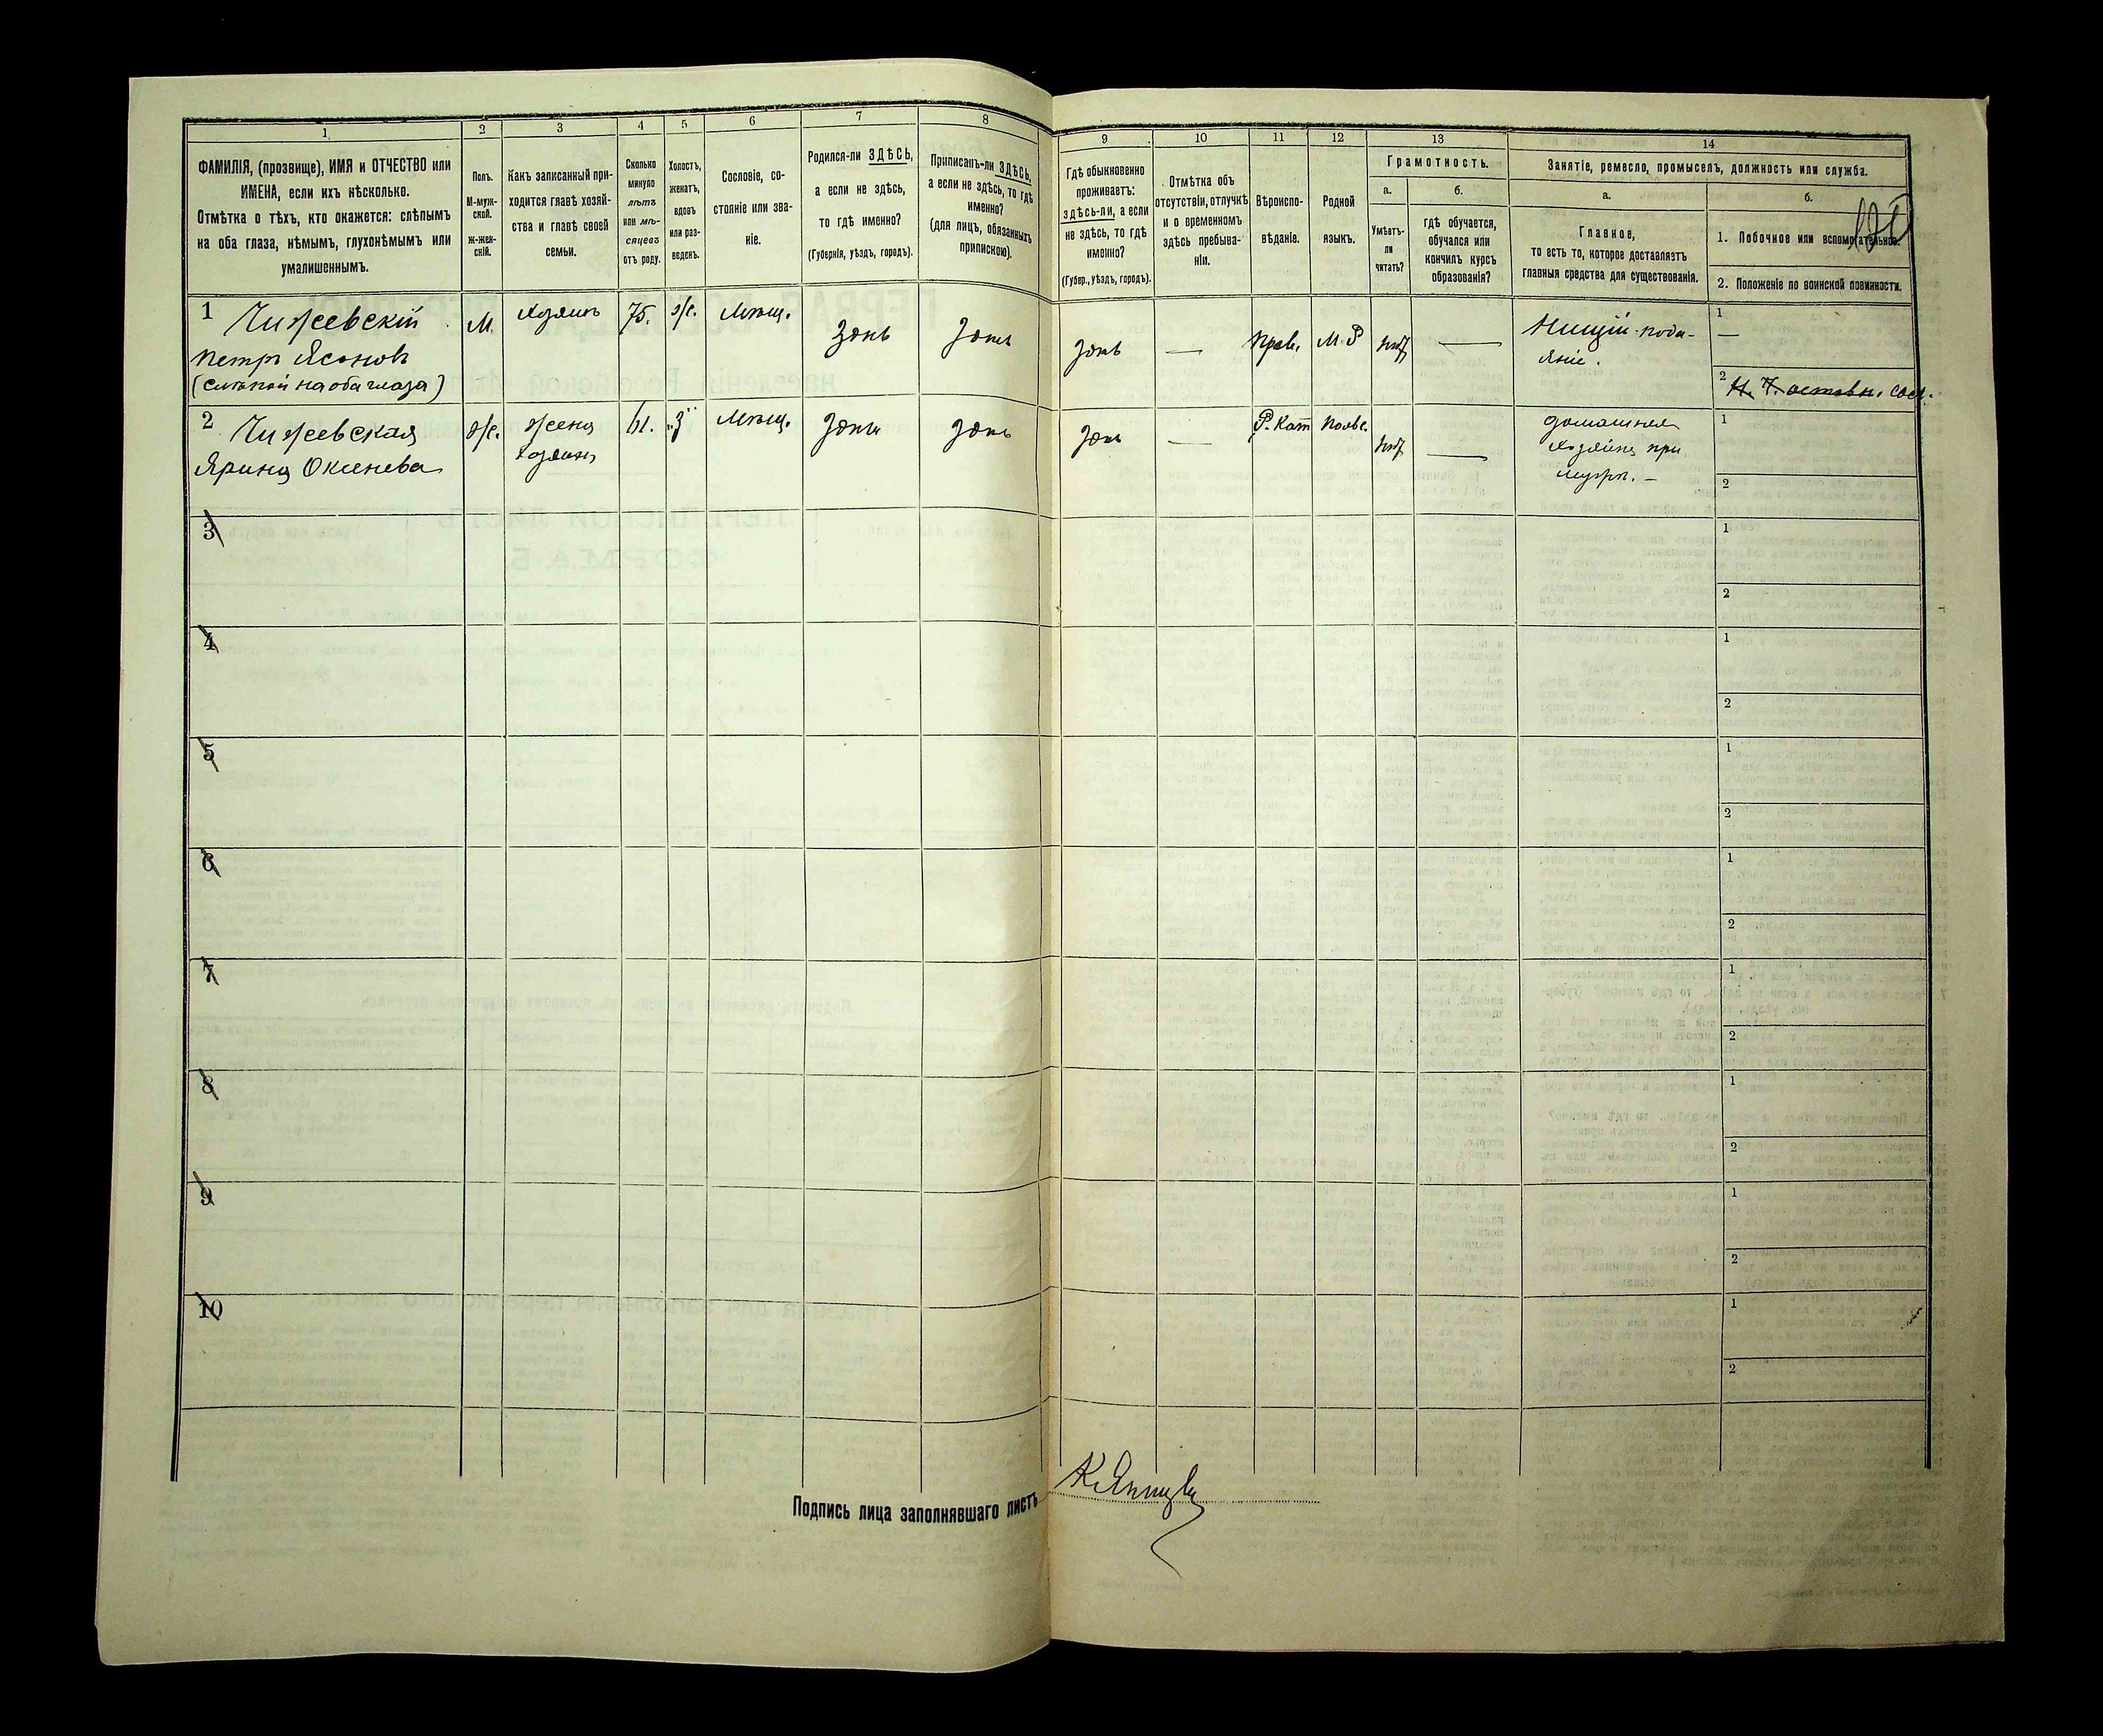 1
ФАМИЛІЯ, (прозвище), ИМЯ и ОТЧЕСТВО или
ИМЕНА, если ихъ нѣсколько.
Отмѣтка о тѣхъ, кто окажется: слѣпымъ
на оба глаза, нѣмымъ, глухонѣмымъ или
умалишеннымъ.
2
Полъ.
М-муж-
ской.
Ж-жен-
скій.
3
Какъ записанный при-
ходится главѣ хозяй-
ства и главѣ своей
семьи.
4
Сколько
минуло
лѣтъ
или мѣ-
сяцевъ
отъ роду.
5
Холостъ,
женатъ,
вдовъ
или раз-
веденъ.
6
Сословіе, со-
стояніе или зва-
ніе.
7
Родился-ли ЗДѢСЬ,
а если не здѣсь,
то гдѣ именно?
(Губернія, уѣздъ, городъ).
8
Приписанъ-ли ЗДѢСЬ,
а если не здѣсь, то гдѣ
именно?
(для лицъ, обязанныхъ
припискою).
9
Гдѣ обыкновенно
проживаетъ:
здѣсь-ли, а если
не здѣсь, то гдѣ
именно?
(Губер., уѣздъ, городъ).
10
Отмѣтка объ
отсутствіи, отлучкѣ
и о временномъ
здѣсь пребыва-
ніи.
11
Вѣроиспо-
вѣданіе.
12
Родной
языкъ.
13
Грамотность.
а.
Умѣетъ-
ли
читать?
б.
гдѣ обучается,
обучался или
кончилъ курсъ
образованія?
14
Занятіе, ремесло, промыселъ, должность или служба.
а.
Главное,
то есть то, которое доставляетъ
главныя средства для существованія.
б.
1. Побочное или вспомогательное.
2. Положеніе по воинской повинности.
1
Чижевскій
Петръ Ясоновъ
(слѣпой на оба глаза)
М.
Хозяинъ
75.
ж.
Мѣщ.
Здѣсь
Здѣсь
Здѣсь
—
Прав.
М. Р
нѣт
—
Нищій пода-
яніе.
1
—
2
2
Чижевская
Ярина
ж.
жена
хозяина
61.
Мѣщ.
Здѣсь
Здѣсь
Здѣсь
—
Р. Кат
Польс.
нѣт
—
домашняя
хозяйка при
мужѣ. —
1
2
3
1
2
4
1
2
5
1
2
6
1
2
7
1
2
8
1
2
9
1
2
10
1
2
Подпись лица заполнявшаго листъ